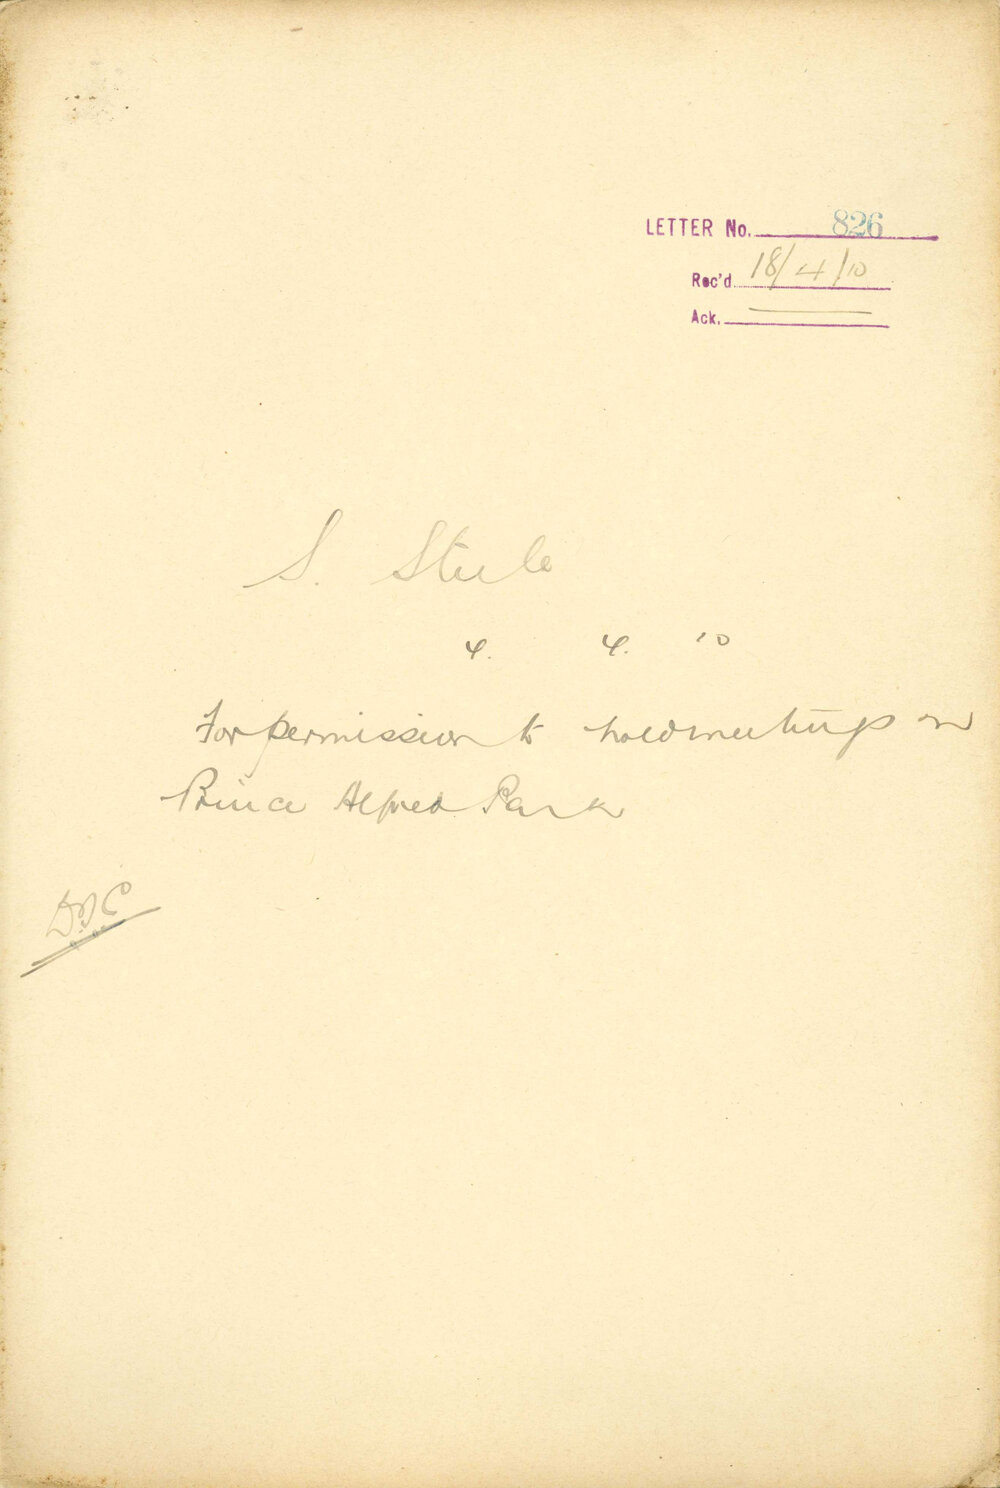 LETTER No. 826
Rec'd 18/4/10
Ack.
S. Steele
4. 4. 10
For permission to hold meetings on
Prince Alfred Park